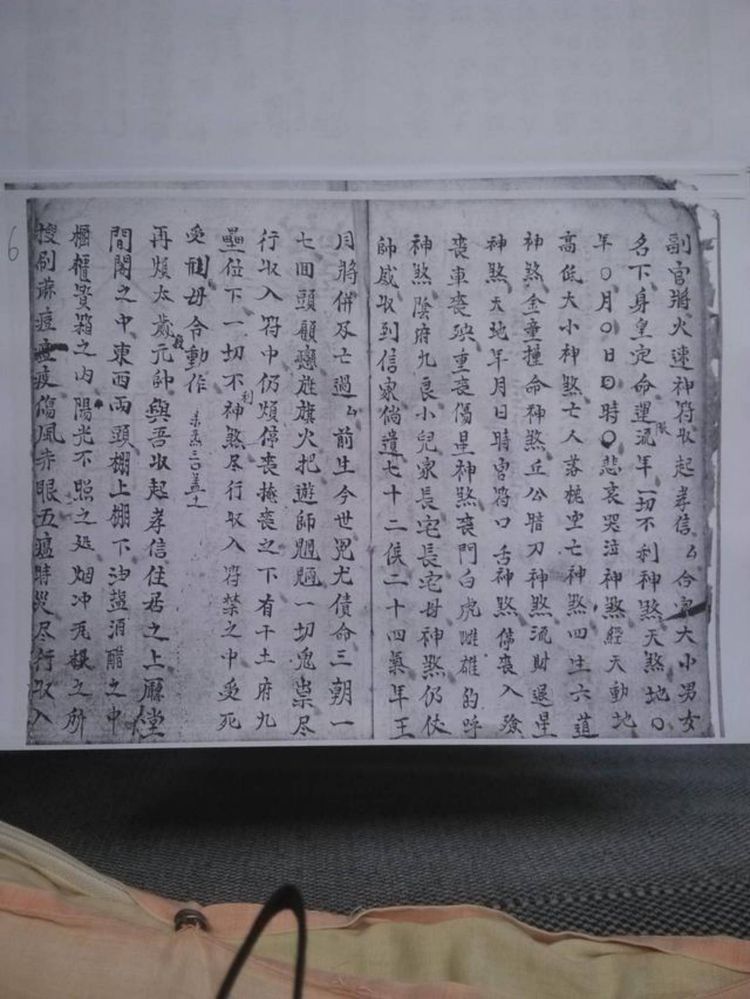 副官將火速神符收起孝信厶合家大小男女
名下身皇定命運流年一切不利神煞天煞地〇
限
年〇月〇日〇時〇悲哀哭泣神煞經天動地
高低大小神煞亡人落枕空亡神煞四生六道
神煞金童撞命神煞丘公暗刀神煞流財退星
神煞天地年月日時官符口舌神煞停喪入殮
喪車喪殃重喪傷星神煞喪門白虎雌雄的呼
神煞陰府九良小児家長宅長宅母神煞仍仗
帥威收到信家倘遺七十二侯二十四氣年王
月將併及亡過厶前生今世冤尤債命三朝一
七回頭顧戀旌旗火把遊師魍魎一切鬼祟尽
行收入符中仍煩停喪掩喪之下有干土府九
壘位下一切不神煞尽行收入符禁之中受死
利
受毋令動作
再煩太歲元帥與吾收起孝信住居之上廳堂
殷
間閣之中東西兩頭棚上棚下油塩酒醋之中
櫥櫃箱之内陽光不照之処烟冲之所
麻痘疫傷風赤眼五瘟時災尽行收入
6